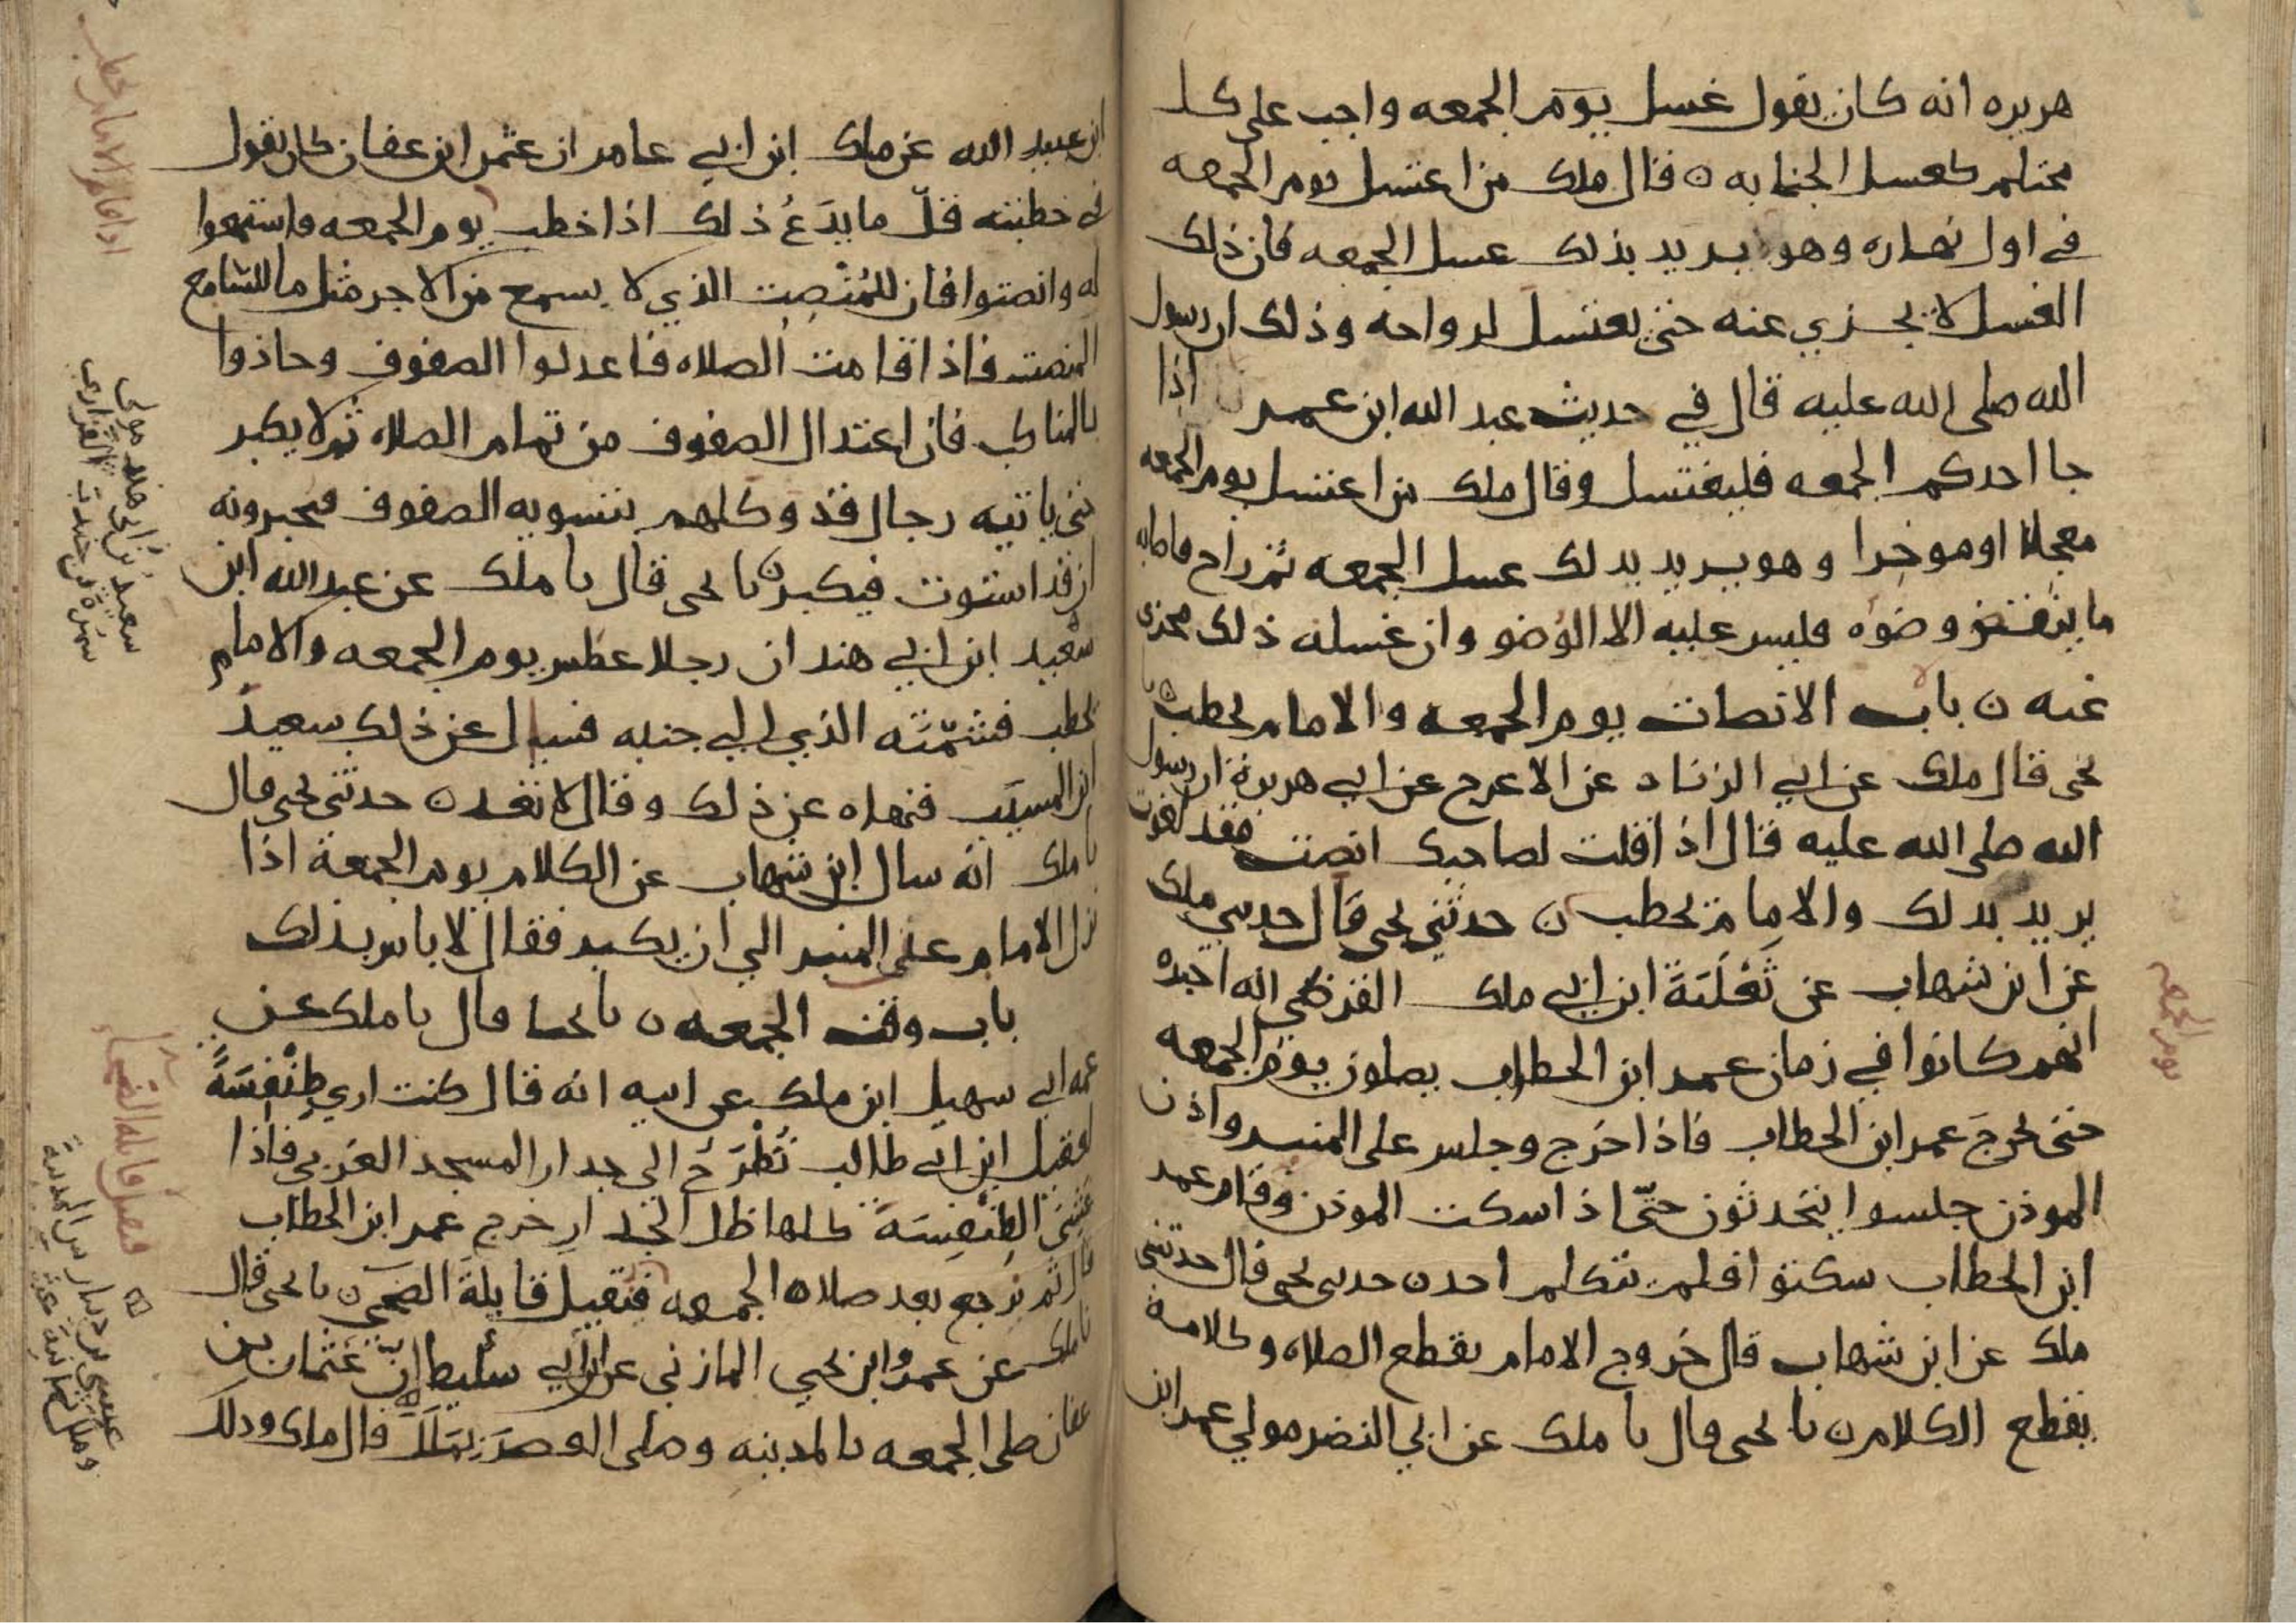 هريره انه كان يقول غسل يوم الجمعه واجب على كل
محتلم كغسل الجنابه ه قال ملك من اغتسل يوم الجمعه
في اول نهاره وهو يريد بذلك غسل الجمعه فان ذلك
الغسل لا يجزي عنه حتى يغتسل لرواحه وذلك ان رسول
الله صلى الله عليه قال في حديث عبد الله ابن عمر اذا
جا احدكم الجمعه فليغتسل وقال ملك من اغتسل يوم الجمعه
معجلا او موخرا وهو يريد بذلك غسل الجمعه ثم راح فاصابه
ما ينقض وضوه فليس عليه الا الوضو وان غسله ذلك مجزي
عنه ن باب الانصات يوم الجمعه والامام يخطب ن نا
يحيى قال ملك عن ابي الزناد عن الاعرج عن ابي هريرة ان رسول
الله صلى الله عليه قال اذا قلت لصاحبك انصت فقد لغوت
يريد بذلك والامام يخطب ن حدثني يحيى قال حدثني ملك
عن ابن شهاب عن ثَعْلَبَةَ ابن ابي ملك القرظي انه اخبره
انهم كانوا في زمان عمر ابن الخطاب يصلون يوم الجمعه
حتى يخرج عمر ابن الخطاب فاذا خرج وجلس على المنبر واذن
الموذن جلسوا يتحدثون حتّى اذا سكت الموذن وقام عمر
ابن الخطاب سكتوا فلم يتكلم احد ن حدثني يحيى قال حدثني
ملك عن ابن شهاب قال خروج الامام يقطع الصلاه وكلامه
يقطع الكلام ن نا يحيى قال نا ملك عن ابي النضر مولى عمر ابن
يوم الجمعه
ابن عبيد الله عن ملك ابن ابي عامر ان عثمن ابن عفان كان يقول
في خطبته قلّ ما يدَعُ ذلك اذا خطب يوم الجمعه فاستمعوا
له وانصتوا فان للمُنْصِت الذي لا يسمع من الاجر مثل ما للسامع
المنصت فاذا قامت الصلاه فاعدلوا الصفوف وحاذوا
بالمناكب فان اعتدال الصفوف من تمام الصلاه ثم لا يكبر
حتى ياتيه رجال قد وكلهم بتسويه الصفوف فيخبرونه
ان قد استوت فيكبر ن نا يحيى قال نا ملك عن عبد الله ابن
سعيد ابن ابي هند ان رجلا عطس يوم الجمعه والامام
يخطب فشمّته الذي الى جنبه فسال عن ذلك سعيد
ابن المسيب فنهاه عن ذلك وقال لا تعد ن حدثني يحيى قال
نا ملك انه سال ابن شهاب عن الكلام يوم الجمعة اذا
نزل الامام على المنبر الى ان يكبر فقال لا باس بذلك
باب وقت الجمعه ن نا يحيا قال نا ملك عن
عمه ابي سهيل ابن ملك عن ابيه انه قال كنت ارى طِنْفِسَةً
لعقيل ابن ابي طالب تُطْرَحُ الى جدار المسجد الغربي فاذا
غشى الطِنْفِسَة كلها ظل الجدار خرج عمر ابن الخطاب
قال ثم نرجع بعد صلاه الجمعه فنقيل قايلة الضحى ن نا يحيى قال
نا ملك عن عمرو ابن يحيي المازني عن ابن ابي سليط انّ عثمان بن
عفان صلى الجمعه بالمدينه وصلى العصر بمَلَل قال ملك وذلك
سعيد بن ابي هند مولى
سمرة بن جندب الفزاري
عيسى بن دينار